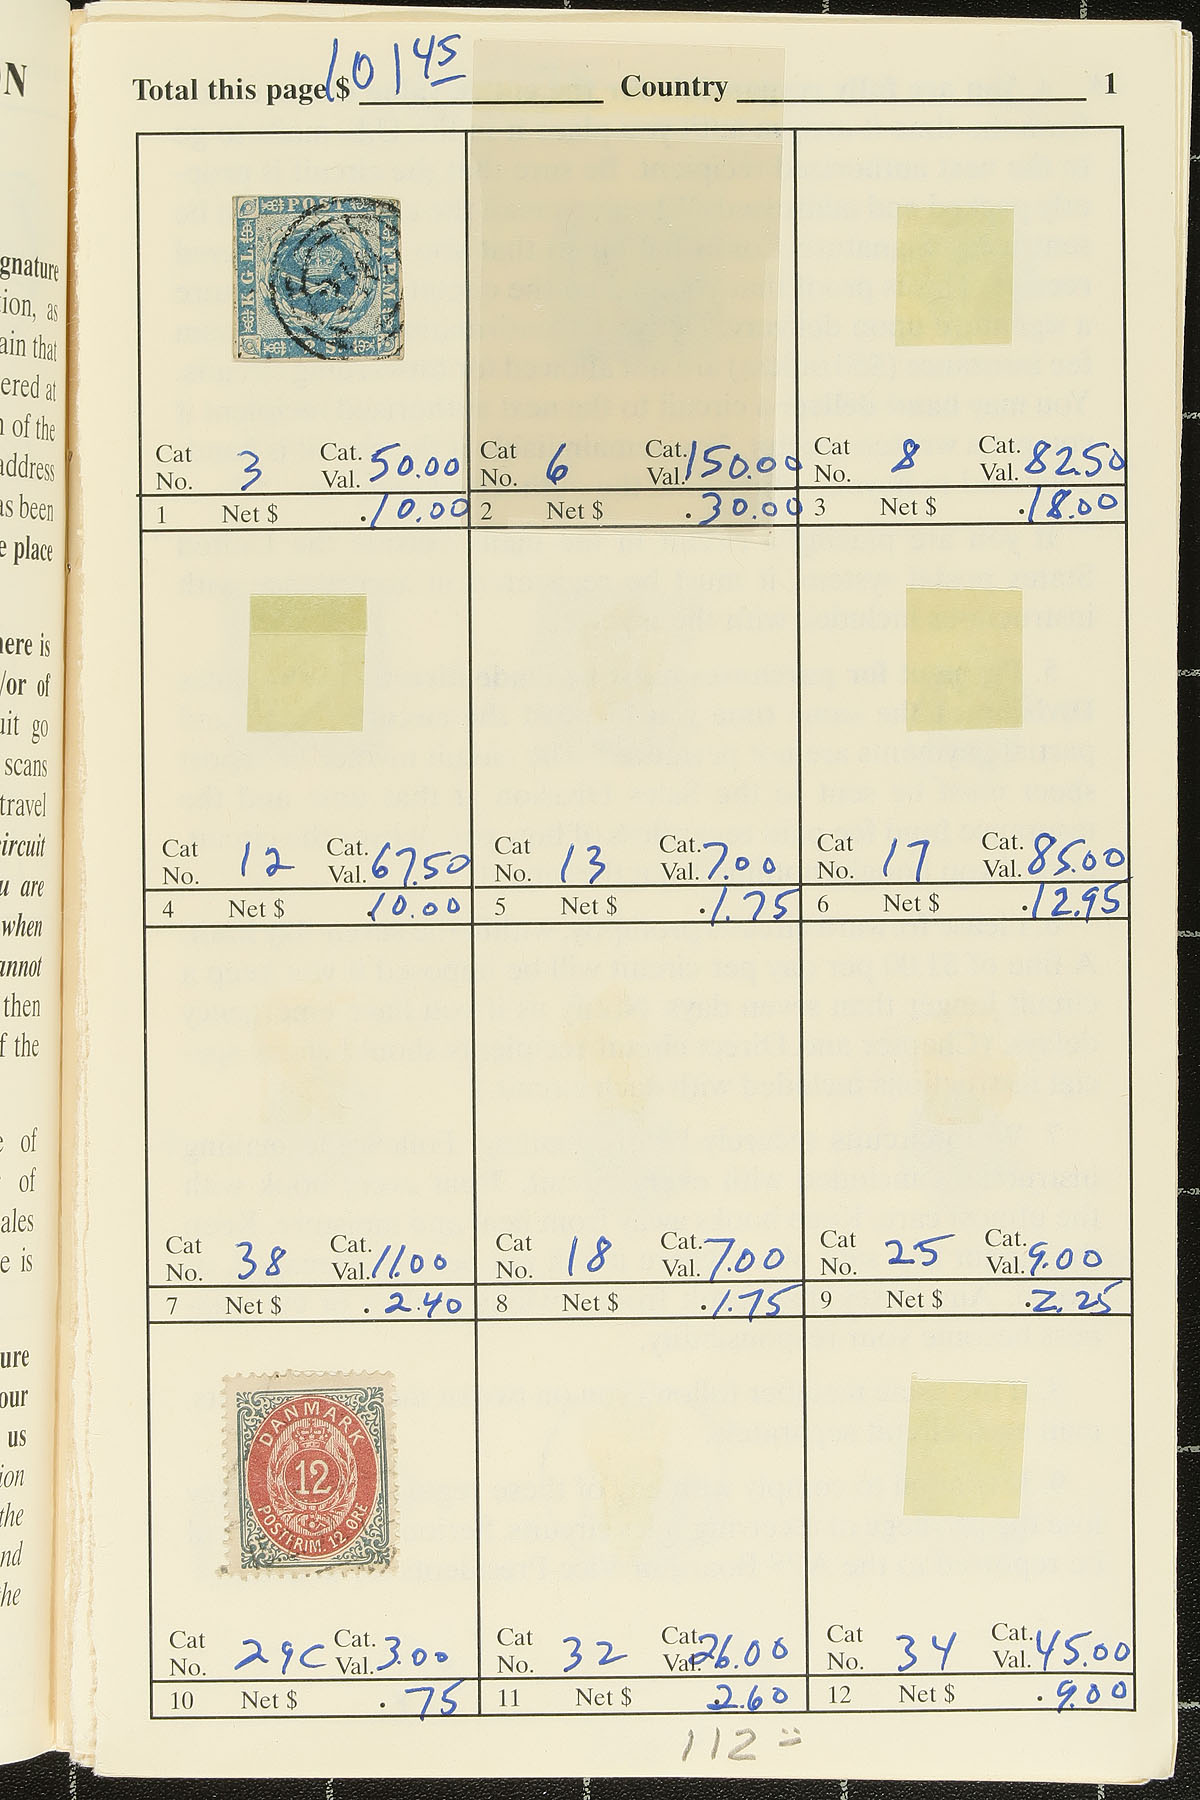 ON
gnature
tion, as
ain that
ered at
n of the
address
as been
e place
here is
/or of
uit go
scans
travel
circuit
u are
when
annot
then
f the
e of
of
ales
e is
ure
our
us
ion
the
nd
the
Total this page $ 101 45 Country 1
POST
K G L
F R M
2 S
Cat No. 3 Cat. Val. 50.00
1 Net $ .10.00
Cat No. 6 Cat. Val. 150.00
2 Net $ .30.00
Cat No. 8 Cat. Val. 82.50
3 Net $ .18.00
Cat No. 12 Cat. Val. 67.50
4 Net $ 10.00
Cat No. 13 Cat. Val. 7.00
5 Net $ .1.75
Cat No. 17 Cat. Val. 85.00
6 Net $ .12.95
Cat No. 38 Cat. Val. 11.00
7 Net $ .2.40
Cat No. 18 Cat. Val. 7.00
8 Net $ .1.75
Cat No. 25 Cat. Val. 9.00
9 Net $ .2.25
DANMARK
12
POSTFRIM. 12 ØRE
Cat No. 29C Cat. Val. 3.00
10 Net $ .75
Cat No. 32 Cat. Val. 26.00
11 Net $ 2.60
Cat No. 34 Cat. Val. 45.00
12 Net $ .9.00
112 =